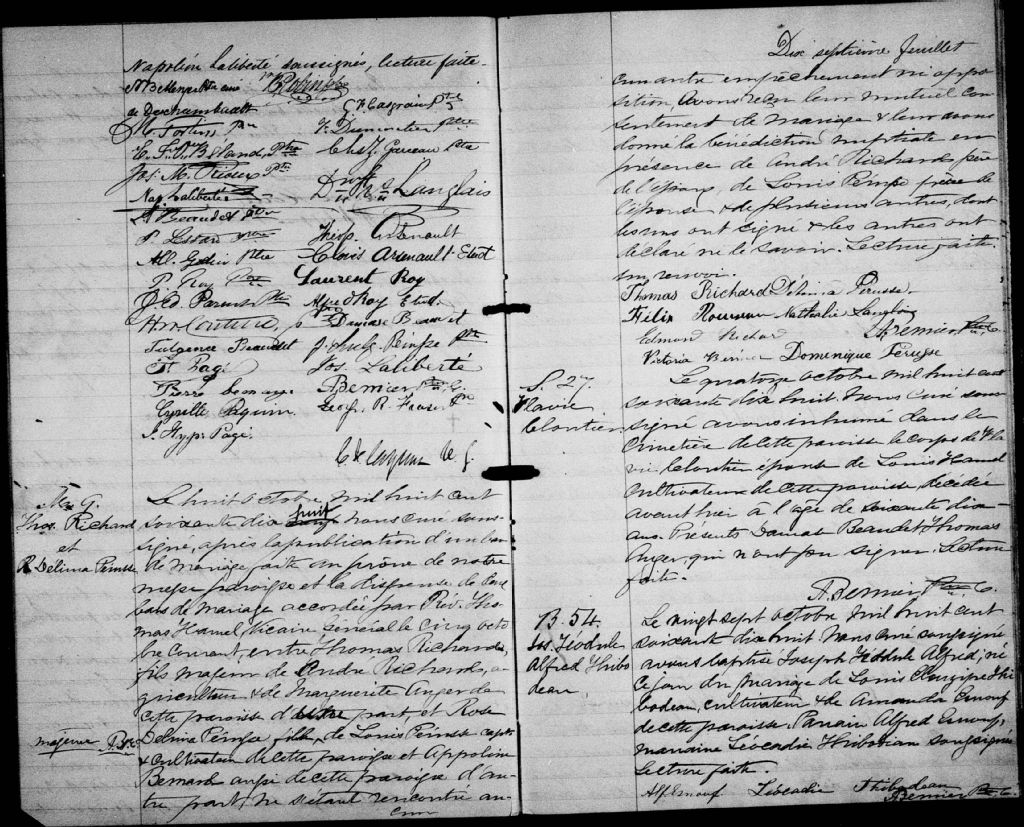 Napoléon Laliberté soussignés, lecture faite.
de Deschambault
G. P. Casgrain Ptre
M. Fortin Ptre
F. Dumontier Ptre
E. F. Béland Ptre
Chs. Garneau Ptre
Jos. M. Rioux Ptre
Nap. Laliberté
Langlais
A. Beaudet Ptre
P. Lessard Ptre
Théop. Arsenault
Clovis Arsenault Etud
P. Roy Ptre
Laurent Roy
Alfred Roy Etud.
Damase Beaudet
Fulgence Beaudet
Ptre
F. Pagé
Jos. Laliberté
Pierre
Bernier Ptre C.
Cyrille Paquin
J. Hyp. Pagé.
M. G.
Thos. Richard
et
R. Delima Perusse
Le huit octobre mil huit cent
soixante dix huit nous curé sous-
signé, après la publication d'un ban
de mariage faite au prône de notre
messe paroissiale et la dispense de deux
bans de mariage accordée par Rév. Tho-
mas Hamel, Vicaire Général le cinq octo
bre courant, entre Thomas Richard,
fils majeur de André Richard, a-
griculteur & de Marguerite Auger de
cette paroisse d'une part, et Rose
majeure
Delima Pérusse fille de Louis Perusse
& cultivateur de cette paroisse et Appoline
Bernard aussi de cette paroisse d'au-
tre part, ne s'étant rencontré au-
cun
Dix septième feuillet
cun autre empêchement ni oppo-
sition, avons reçu leur mutuel con-
sentement de mariage & leur avons
donné la bénédiction nuptiale en
présence de André Richard père
de l'époux, de Louis Pérusse père de
l'épouse & de plusieurs autres, dont
les uns ont signé & les autres ont
déclaré ne le savoir. Lecture faite.
un renvoi.
Thomas Richard Délima Perusse.
Félix Rousseau Nathalie Langlois
Edmond Richard
A. Bernier Ptre C.
Victoria Bernier Dominique Pérusse
S. 27.
Flavie
Cloutier
Le quatorze octobre mil huit cent
soixante dix huit. Nous curé sous-
signé avons inhumé dans le
cimetière de cette paroisse le corps de Fla
vie Cloutier épouse de Louis Hamel
cultivateur de cette paroisse, décédée
avant hier à l'age de soixante dix
ans. Présents Damase Beaudet, Thomas
Auger, qui n'ont pu signer. Lecture
faite.
A. Bernier Ptre C.
B. 54.
Jos. Téodule
Alfred Thibo
deau
Le vingt sept octobre mil huit cent
soixante dix huit nous curé soussigné
avons baptisé Joseph Téodule Alfred, né
ce jour du mariage de Louis Onezipe Thi
bodeau, cultivateur & de Amanda Ernouf
de cette paroisse. Parrain Alfred Ernouf,
marraine Léocadie Thibodeau soussignés
Lecture faite.
Alf Ernouf Léocadie Thibodeau
Bernier Ptre C.